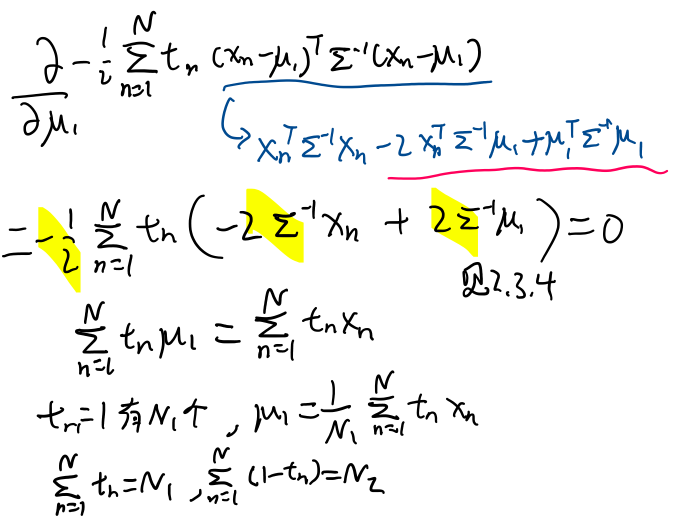 ∂/∂μ₁ -1/2 Σ_{n=1}^{N} tₙ (xₙ-μ₁)ᵀ Σ⁻¹ (xₙ-μ₁)
xₙᵀ Σ⁻¹ xₙ - 2 xₙᵀ Σ⁻¹ μ₁ + μ₁ᵀ Σ⁻¹ μ₁
= -1/2 Σ_{n=1}^{N} tₙ ( -2 Σ⁻¹ xₙ + 2 Σ⁻¹ μ₁ ) = 0
2.3.4
Σ_{n=1}^{N} tₙ μ₁ = Σ_{n=1}^{N} tₙ xₙ
tₙ=1 有 N₁ 个 , μ₁ = 1/N₁ Σ_{n=1}^{N} tₙ xₙ
Σ_{n=1}^{N} tₙ = N₁ , Σ_{n=1}^{N} (1-tₙ) = N₂